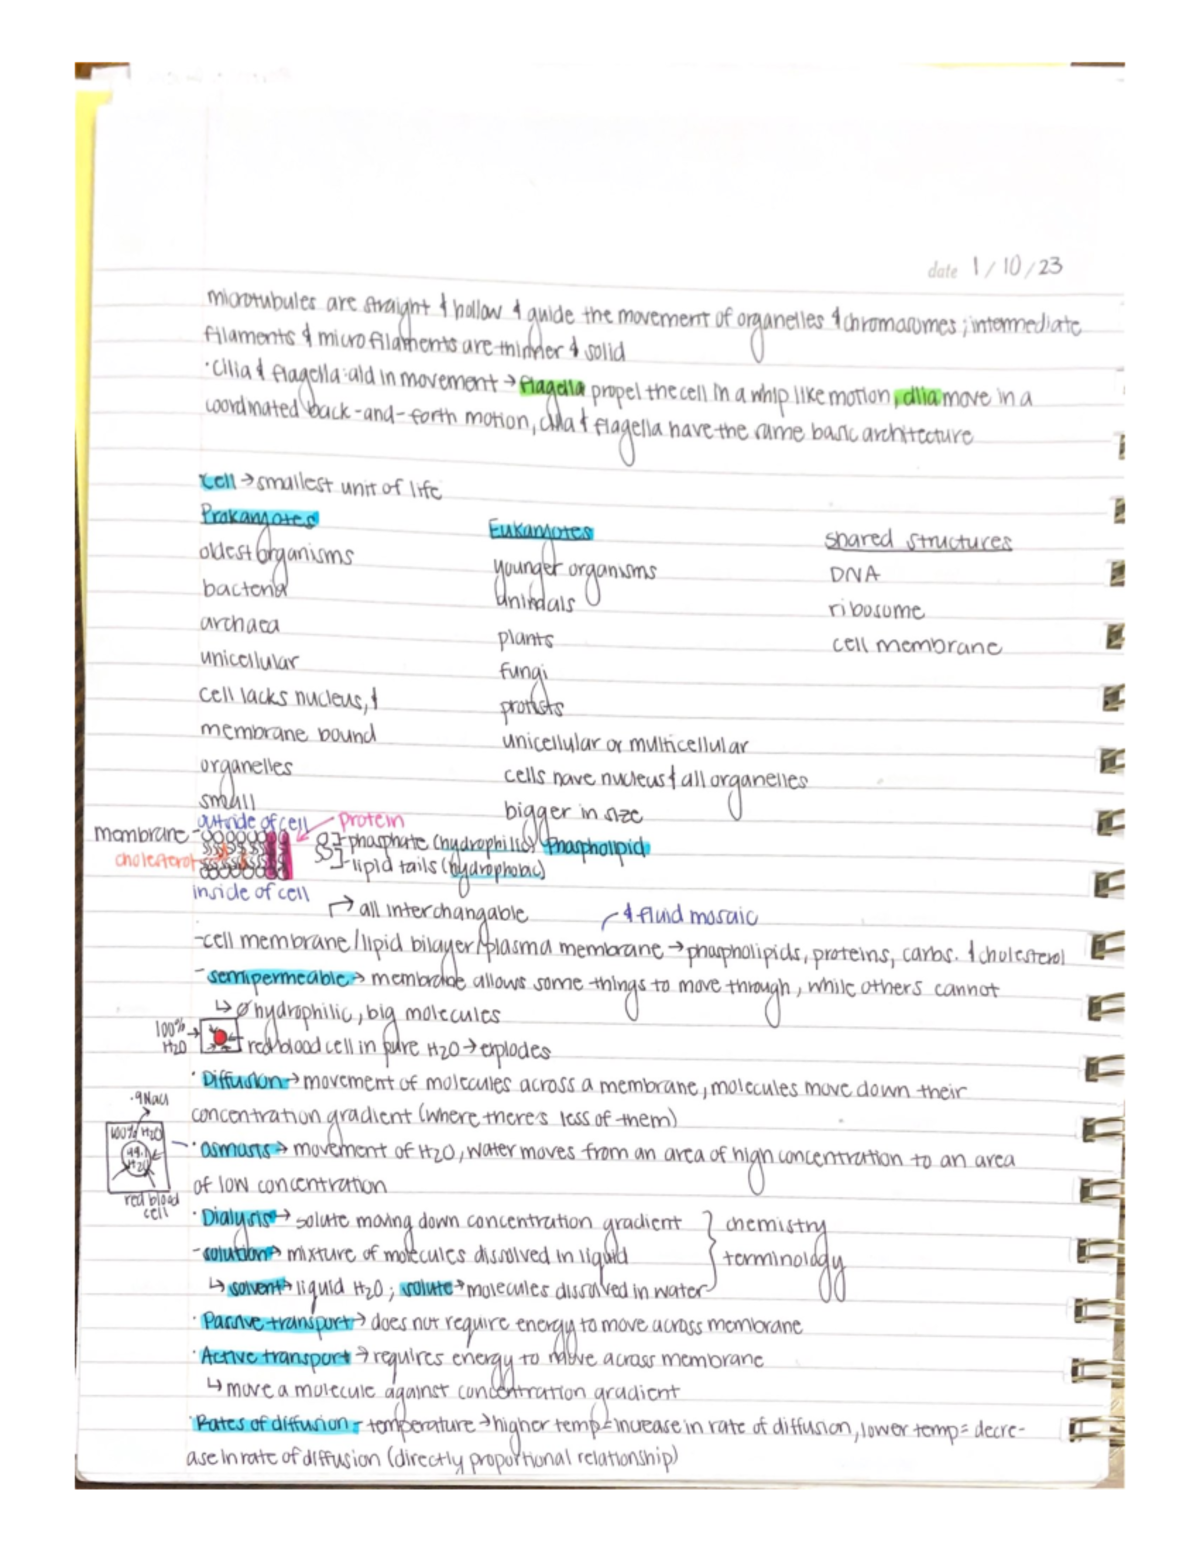 date 1/10/23
microtubules are straight & hollow & guide the movement of organelles & chromosomes; intermediate
filaments & microfilaments are thinner & solid
·cilia & flagella: aid in movement → flagella propel the cell in a whip like motion, cilia move in a
coordinated back-and-forth motion, cilia & flagella have the same basic architecture
Cell → smallest unit of life
Prokaryotes
oldest organisms
bacteria
archaea
unicellular
cell lacks nucleus, &
membrane bound
organelles
small
Eukaryotes
younger organisms
animals
plants
fungi
protists
unicellular or multicellular
cells have nucleus & all organelles
bigger in size
shared structures
DNA
ribosome
cell membrane
outside of cell
protein
membrane
cholesterol
inside of cell
phosphate (hydrophilic) Phospholipid
lipid tails (hydrophobic)
→ all interchangable
& fluid mosaic
-cell membrane/lipid bilayer/plasma membrane → phospholipids, proteins, carbs. & cholesterol
- semipermeable → membrane allows some things to move through, while others cannot
↳ Ø hydrophilic, big molecules
100% → H2O
red blood cell in pure H2O → explodes
· Diffusion → movement of molecules across a membrane, molecules move down their
concentration gradient (where there's less of them)
.9 NaCl
100% H2O
99.1 H2O
red blood
cell
· Osmosis → movement of H2O, water moves from an area of high concentration to an area
of low concentration
· Dialysis → solute moving down concentration gradient
- solution → mixture of molecules dissolved in liquid
↳ solvent → liquid H2O; solute → molecules dissolved in water
chemistry
terminology
· Passive transport → does not require energy to move across membrane
· Active transport → requires energy to move across membrane
↳ move a molecule against concentration gradient
· Rates of diffusion - temperature → higher temp = increase in rate of diffusion, lower temp = decre-
ase in rate of diffusion (directly proportional relationship)